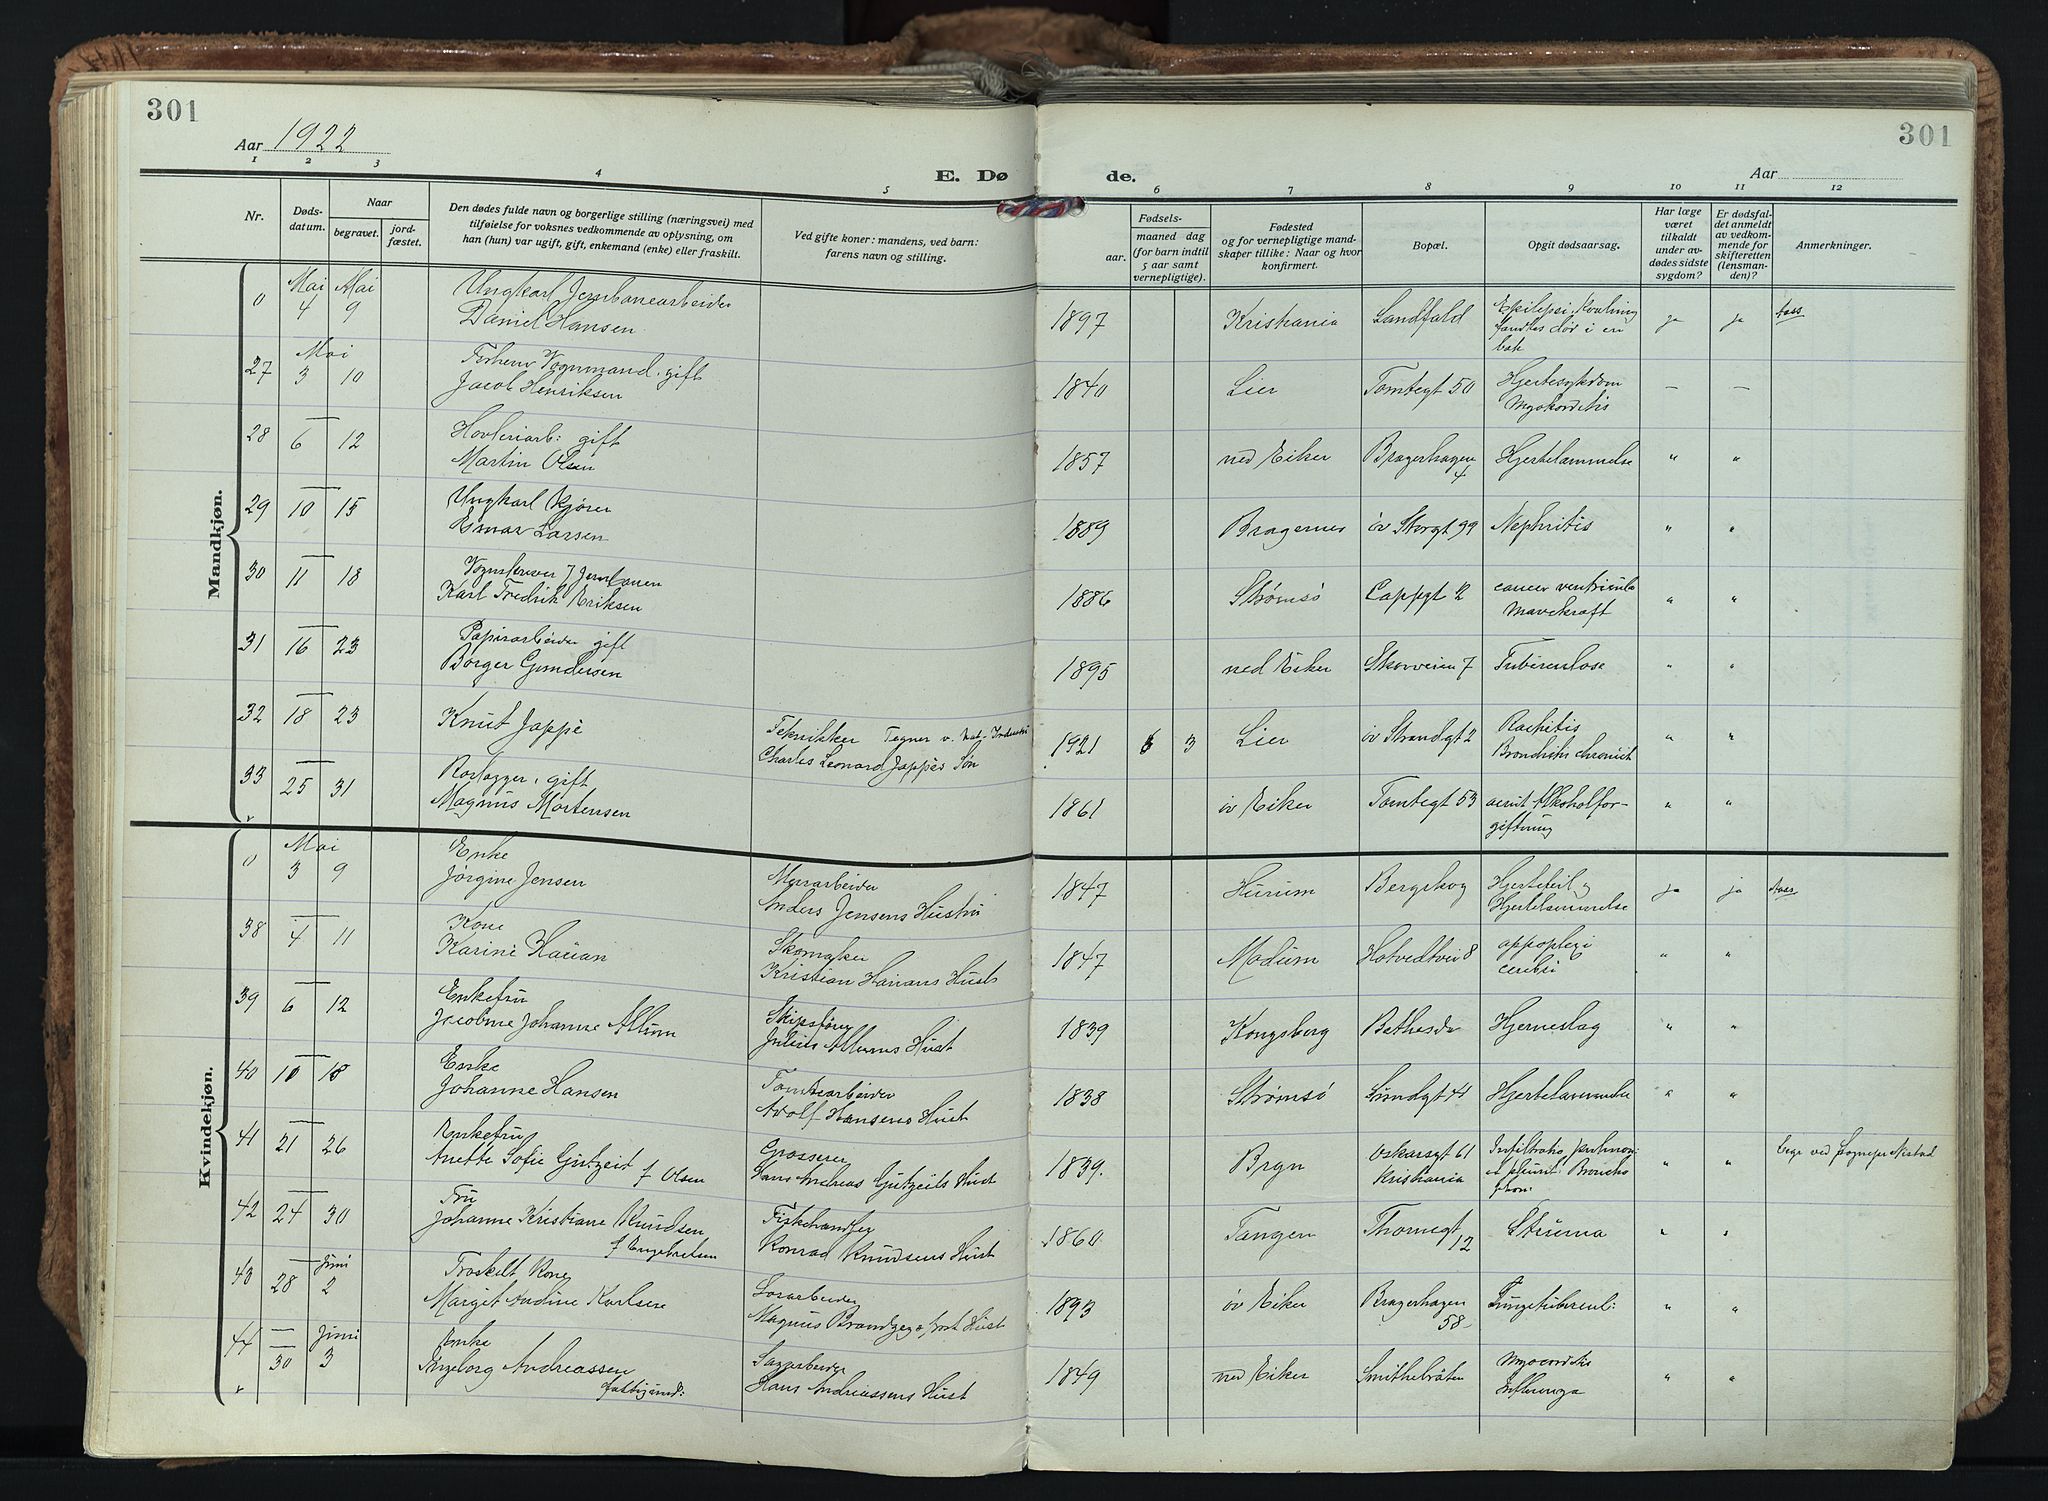 301
301
Aar 1922
E. Dø de.
Aar
1 2 3 4 5 6 7 8 9 10 11 12
Nr.
Dødsdatum.
Naar
begravet.
jordfæstet.
Den dødes fulde navn og borgerlige stilling (næringsvei) med
tilføielse for voksnes vedkommende av oplysning, om
han (hun) var ugift, gift, enkemand (enke) eller fraskilt.
Ved gifte koner: mandens, ved barn:
farens navn og stilling.
Fødsels-
aar.
maaned dag
(for barn indtil
5 aar samt
vernepligtige).
Fødested
og for vernepligtige mand-
skaper tillike: Naar og hvor
konfirmert.
Bopæl.
Opgit dødsaarsag.
Har læge
været
tilkaldt
under av-
dødes sidste
sygdom?
Er dødsfal-
det anmeldt
av vedkom-
mende for
skifteretten
(lensman-
den)?
Anmerkninger.
Mandkjøn.
0 Mai 4 Mai 9 Ungkarl Jernbanearbeider
Daniel Hansen 1897 Kristiania Landfald Epilepsi
død i en
ja ja Aass
27 Mai 3 10 Forhenv Vognmand. gift
Jacob Henriksen 1840 Lier Tomtegt 50 Hjertesykdom
Myokorditis — —
28 — 6 12 Hovleriarb: gift
Martin Olsen 1857 ned Eiker Bragerhagen 4 Hjertelammelse " "
29 — 10 15 Ungkarl Kjører
Einar Larsen 1889 Bragernes öv Storgt 99 Nephritis " "
30 — 11 18
Karl Fredrik Eriksen 1886 Strømsö Cappgt 12 cancer ventriculi
Mavekraft " "
31 — 16 23 Papirarbeider gift
Borger Gundersen 1895 ned Eiker Skovveien 7 Tuberculose " "
32 — 18 23 Knut Jappe Teknikker Tegner v.
Charles Leonard Jappes Søn 1921 6 3 Lier öv Strandgt 2 Rachitis
Bronchitis chronisk " "
33 — 25 31 Rørlægger. gift
Magnus Mortensen 1861 öv Eiker Tomtegt 53 acut Alkoholfor-
giftning " "
Kvindekjøn.
0 Mai 3 9 Enke
Jørgine Jensen Murarbeider
Anders Jensens Hustru 1847 Hurum Bergskog Hjertefeil og
Hjertelammelse ja ja Aass
38 — 4 11 Kone
Karine Hauan Skomaker
Kristian Hauans Hust 1847 Modum Hotvedtvei 8 appoplexi
cerebri " "
39 — 6 12 Enkefru
Jacobine Johanne Allum Skipsfører
Julius Allums Hust 1839 Kongsberg Bethesda Hjerneslag " "
40 — 10 18 Enke
Johanne Hansen Tomtearbeider
Adolf Hansens Hust 1838 Strømsö Sundgt 41 Hjertelammelse " "
41 — 21 26 Enkefru
Anette Sofie Gutzeit f Olsen Grosserer
Hans Andreas Gutzeits Hust 1839. Brgn Oskarsgt 61
Kristiania Infiltratio pulmon:
et pleurit: Broncho
" " Bege ved sogneprest
42 — 24 30 Fru
Johanne Kristiane Knudsen
f Engebretsen Fiskehandler
Konrad Knudsens Hust 1860 Tangen Thornegt 12 Struma " "
43 — 28 Juni 2 Fraskilt Kone
Margit Andine Karlsen
Magnus Brandzeg Hust 1893 öv Eiker Bragerhagen 58 Lungetubercul: " "
44 — 30 Juni 3 Enke
Ingeborg Andreassen
fattigund: Sagarbeider
Hans Andreassens Hust 1849 ned Eiker Smithebråten Myocorditis
Influenza " "